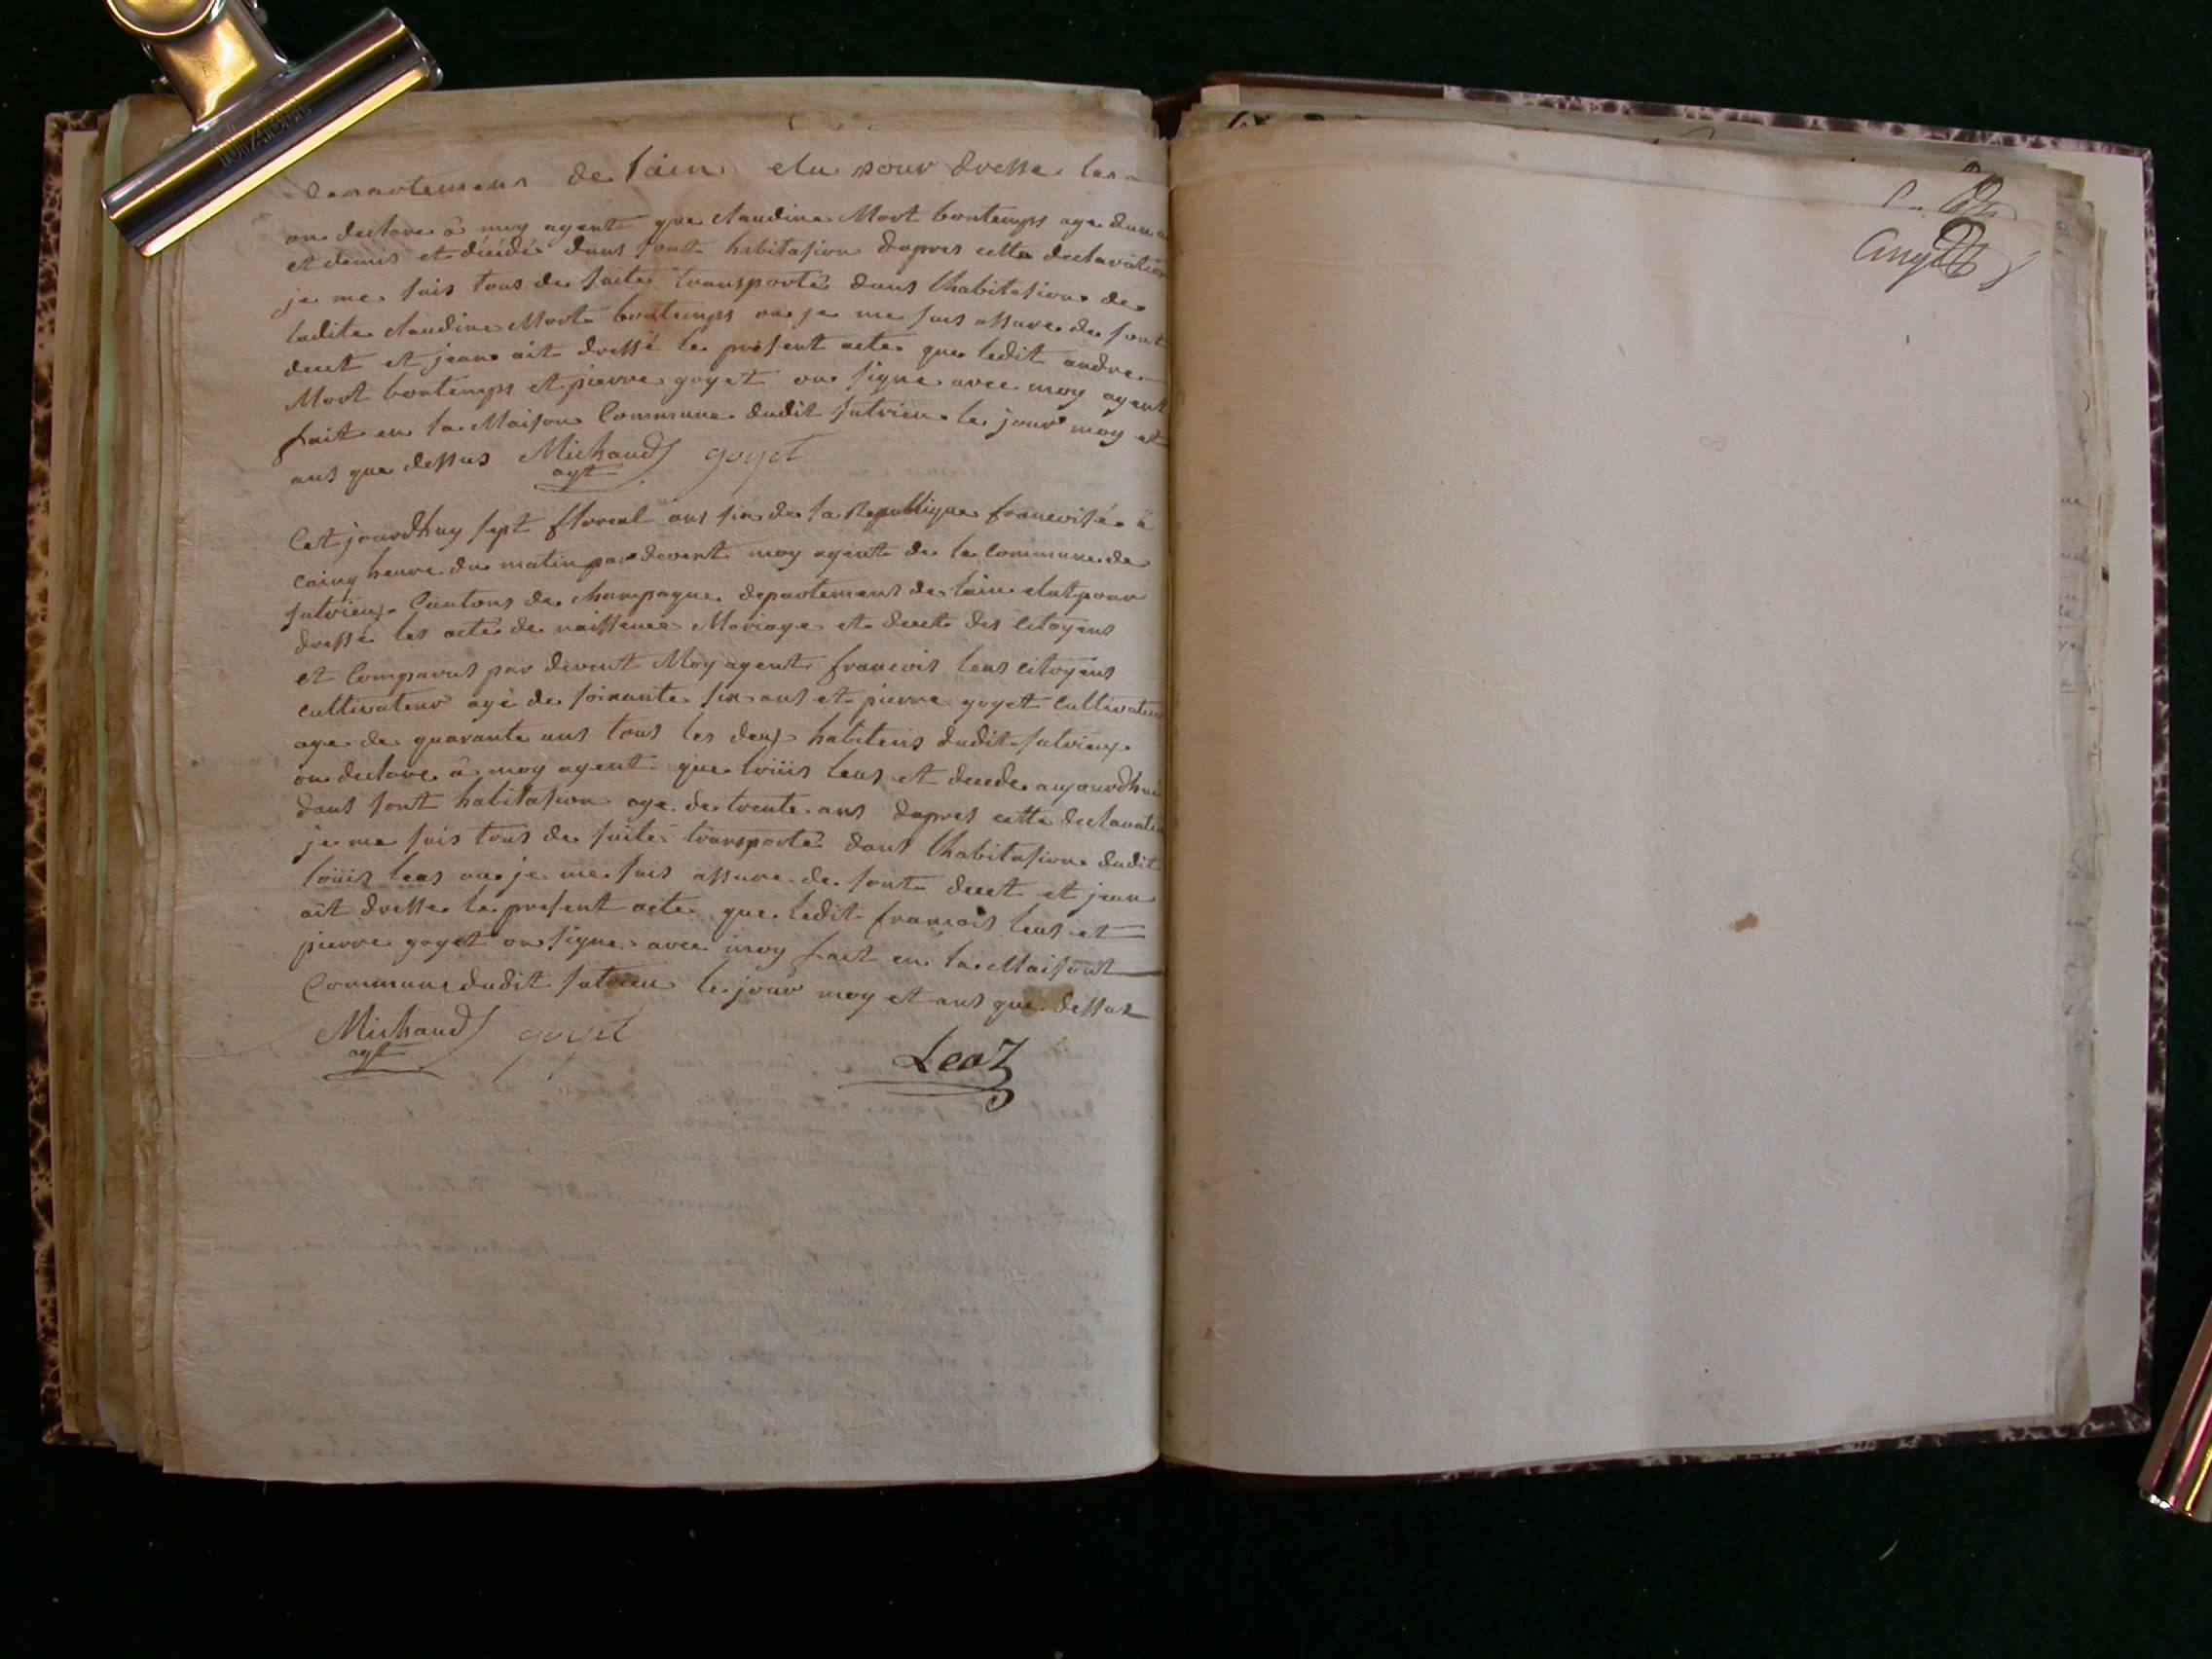 Departemens de lain elu pour dresse les
on declare a moy agent que claudine Mort bontemps age dun a
et demis et décédé dans sont habitasion dapres cette declaration
je me suis tous de suite transporté dans lhabitasion de
ladite claudine Mort bontemps ou je me suis assure de sont
deut et jean ait dressé le présent acte que ledit andre
Mort bontemps et pierre goyet on signe avec moy agent
fait en la Maison Commune dudit sutrieu le jour moy et
ans que dessus Michaud goyet
agt
Cet jourdhuy sept floreal ans six de la Republique francoisé a
cainq heure du matin par devent moy agent de la commune de
sutrieux Cantons de champagne departemens de lain elut pour
dressé les acte de naissence Mariage et deut des Citoyens
et Comparus par devent Moy agent francois leas citoyens
cultivateur agé de soixante six ans et pierre goyet cultivateur
age de quarante ans tous les deux habitens dudit sutrieux
on déclare a moy agent que loüis leas et decede aujourdhui
dans sont habitasion age de trente ans dapres cette declaration
je me suis tous de suite transporté dans lhabitasion dudit
loüis leas ou je me suis assure de sont deut et jean
ait dresse le present acte que ledit francois leas et
pierre goyet on signe avec moy fait en la Maisont
Commune dudit sutrieu le jour moy et ans que dessus
Michaud goyet
agt
Leaz